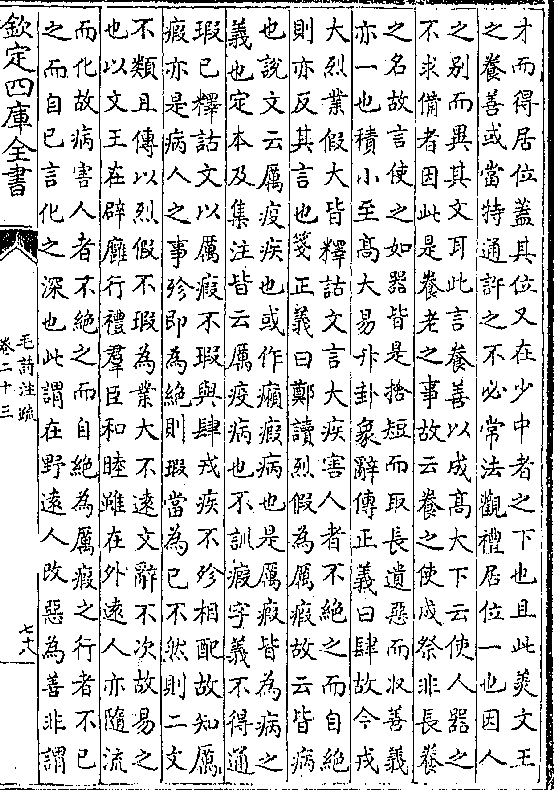 才而得居位蓋其位又在少中者之下也且此美文王
之養善或當特通許之不必常法觀禮居位一也因人
之别而異其文耳此言養善以成髙大下云使人器之
不求備者因此是養老之事故云養之使成祭非長養
之名故言使之如器皆是捨短而取長遺惡而収善義
亦一也積小至髙大易升卦象辭傳正義曰肆故今戎
大烈業假大皆釋詁文言大疾害人者不絶之而自絶
則亦反其言也箋正義曰鄭讀烈假為厲瘕故云皆病
也說文云厲疫疾也或作癩瘕病也是厲瘕皆為病之
義也定本及集注皆云厲疫病也不訓瘕字義不得通
瑕已釋詁文以厲瘕不瑕與肆戎疾不殄相配故知厲
瘕亦是病人之事殄即為絶則瑕當為已不然則二文
不類且傳以烈假不瑕為業大不逺文辭不次故易之
也以文王在辟廱行禮羣臣和睦雖在外逺人亦隨流
而化故病害人者不絶之而自絶為厲瘕之行者不已
之而自已言化之深也此謂在野逺人改惡為善非謂
欽定四庫全書
毛詩注疏
卷二十三
七十八